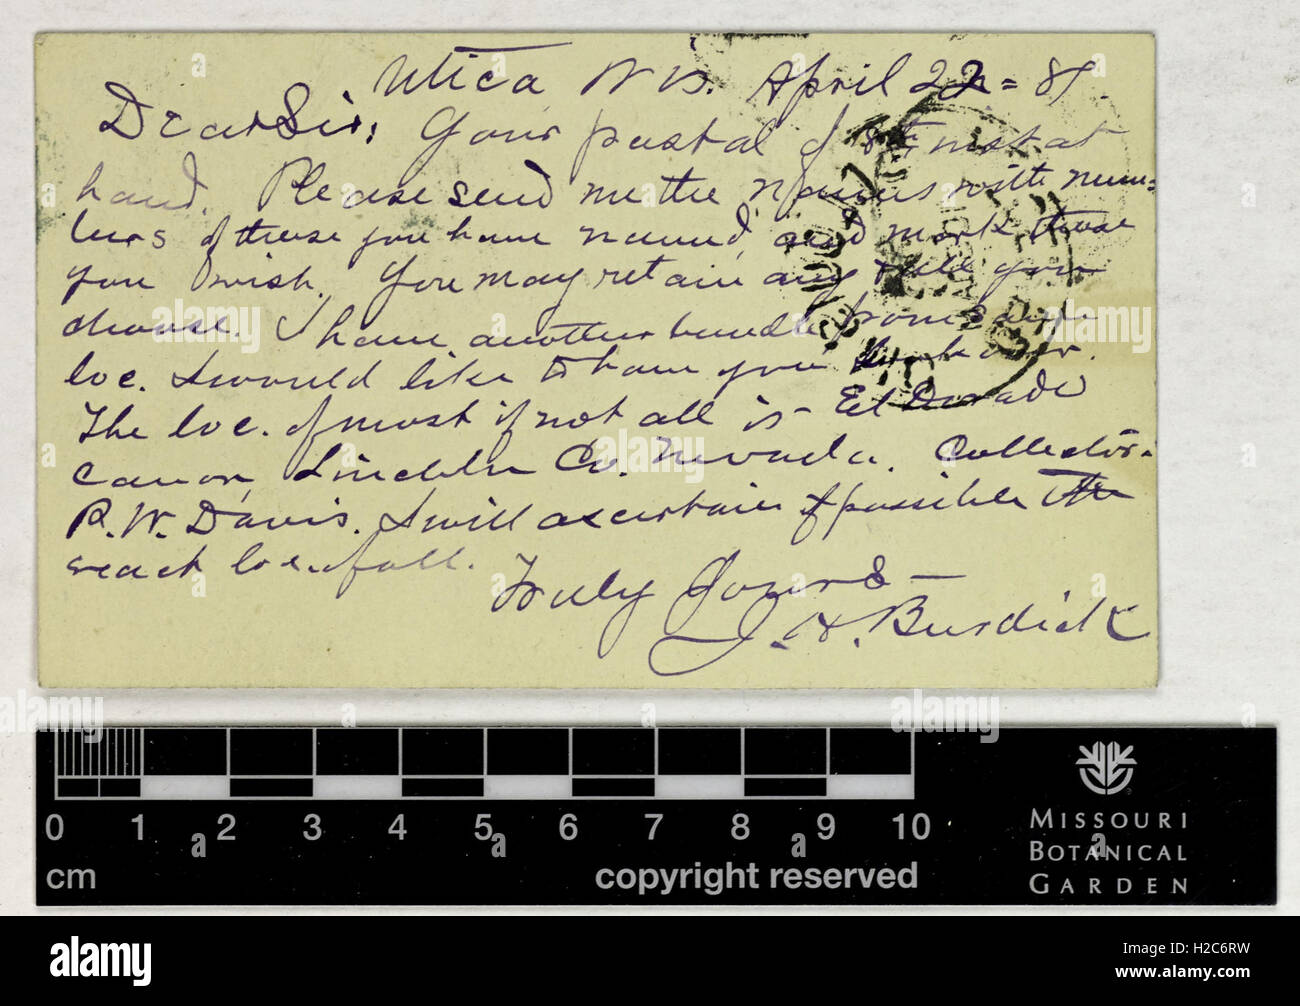 Utica N. Y. April 22 = 87.
Dear Sir: Your postal of 8th inst at
hand. Please send me the names with num=
bers of those you have named, and mark those
you wish. You may retain any
choose. I have another bundle from same
loc. I would like to have you look over.
The loc. of most if not all is El Dorado
Canon, Lincoln Co. Nevada. Collector:
R. W. Davis. I will ascertain if possible the
exact loc. of all.
Truly Yours
J. H. Burdick
0 1 2 3 4 5 6 7 8 9 10
cm
copyright reserved
MISSOURI
BOTANICAL
GARDEN
alamy
Image ID: H2C6RW
www.alamy.com